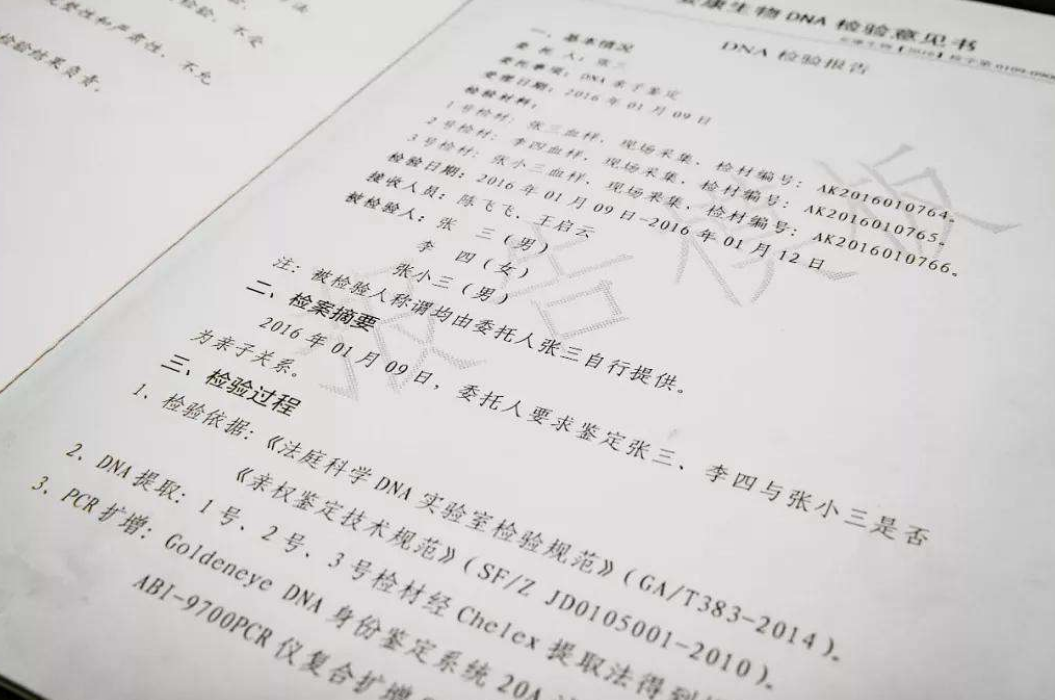 整性和严肃性，不允
检验结果负责。
康生物 DNA 检验意见书
DNA 检验报告
一、基本情况
委 托 人：张三
委托事项：DNA 亲子鉴定
受理日期：2016 年 01 月 09 日
检验材料：
1 号检材：张三血样，现场采集，检材编号：AK2016010764。
2 号检材：李四血样，现场采集，检材编号：AK2016010765。
3 号检材：张小三血样，现场采集，检材编号：AK2016010766。
检验日期：2016 年 01 月 09 日-2016 年 01 月 12 日
接收人员：陈飞飞、王启云
被检验人：张 三（男）
李 四（女）
张小三（男）
注：被检验人称谓均由委托人张三自行提供。
二、检案摘要
2016 年 01 月 09 日，委托人要求鉴定张三、李四与张小三是否
为亲子关系。
三、检验过程
1、检验依据：《法庭科学 DNA 实验室检验规范》（GA/T383-2014）。
《亲权鉴定技术规范》（SF/Z JD0105001-2010）。
2、DNA 提取：1 号、2 号、3 号检材经 Chelex 提取法得到
3、PCR 扩增：Goldeneye DNA 身份鉴定系统 20A
ABI-9700PCR 仪复合扩增